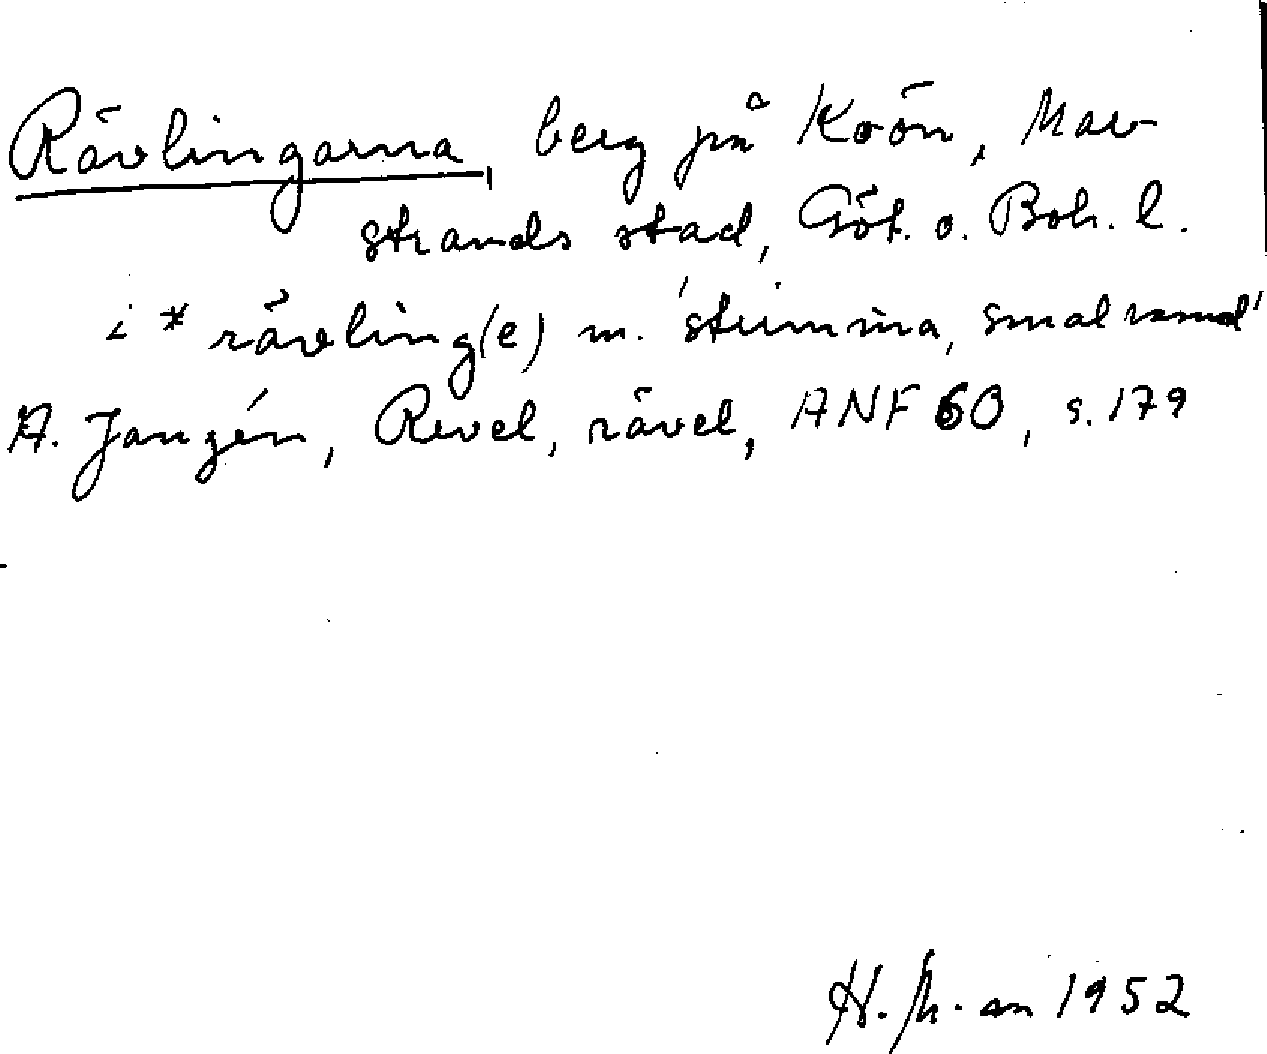 Rävlingarna, berg på Koön, Mar
strands stad, Göt. o. Boh. l.
i * rävling(e) m. 'strimma, smal rand'
A. Janzén, Revel, rävel, ANF 60, s. 179
H. 1952